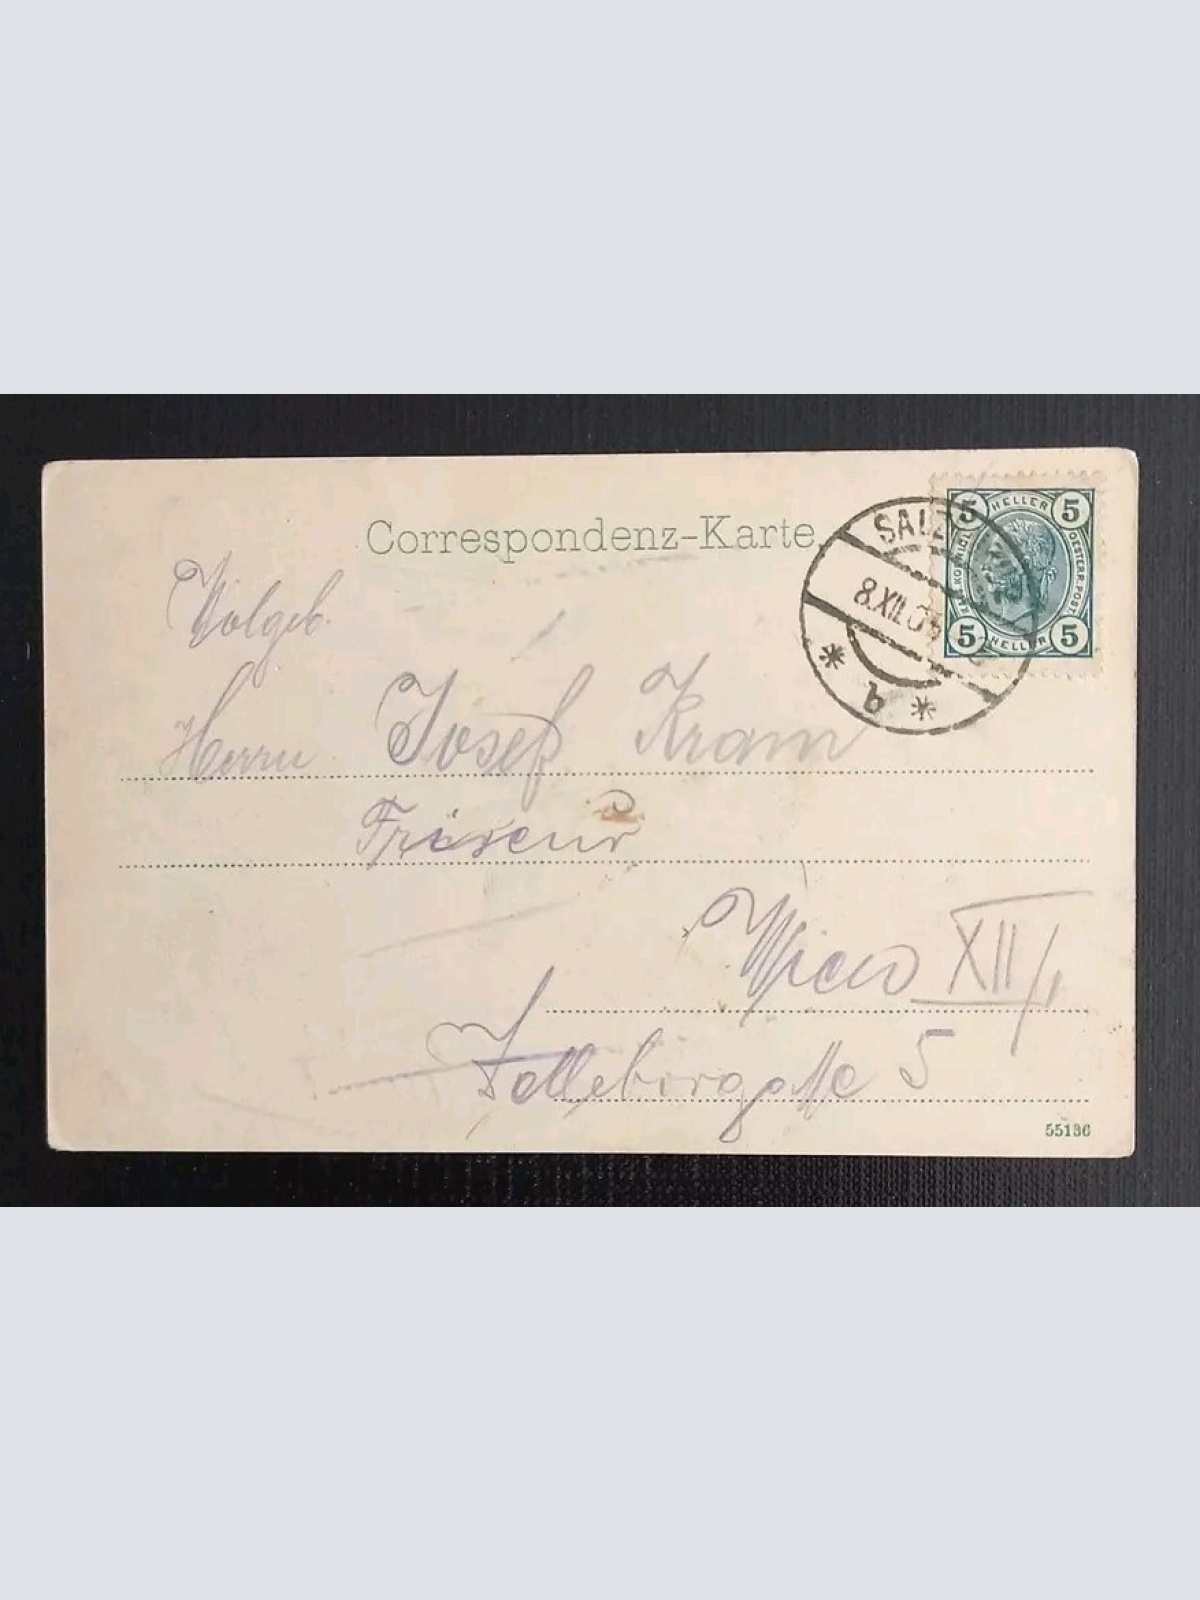 Correspondenz-Karte.
5 HELLER 5
KAIS. KÖNIGL. OESTERR. POST.
5 HELLER 5
8.XII.0
*
*
Wolgeb.
Herrn Josef Kram
Friseur
Wien XII/1
5
55136